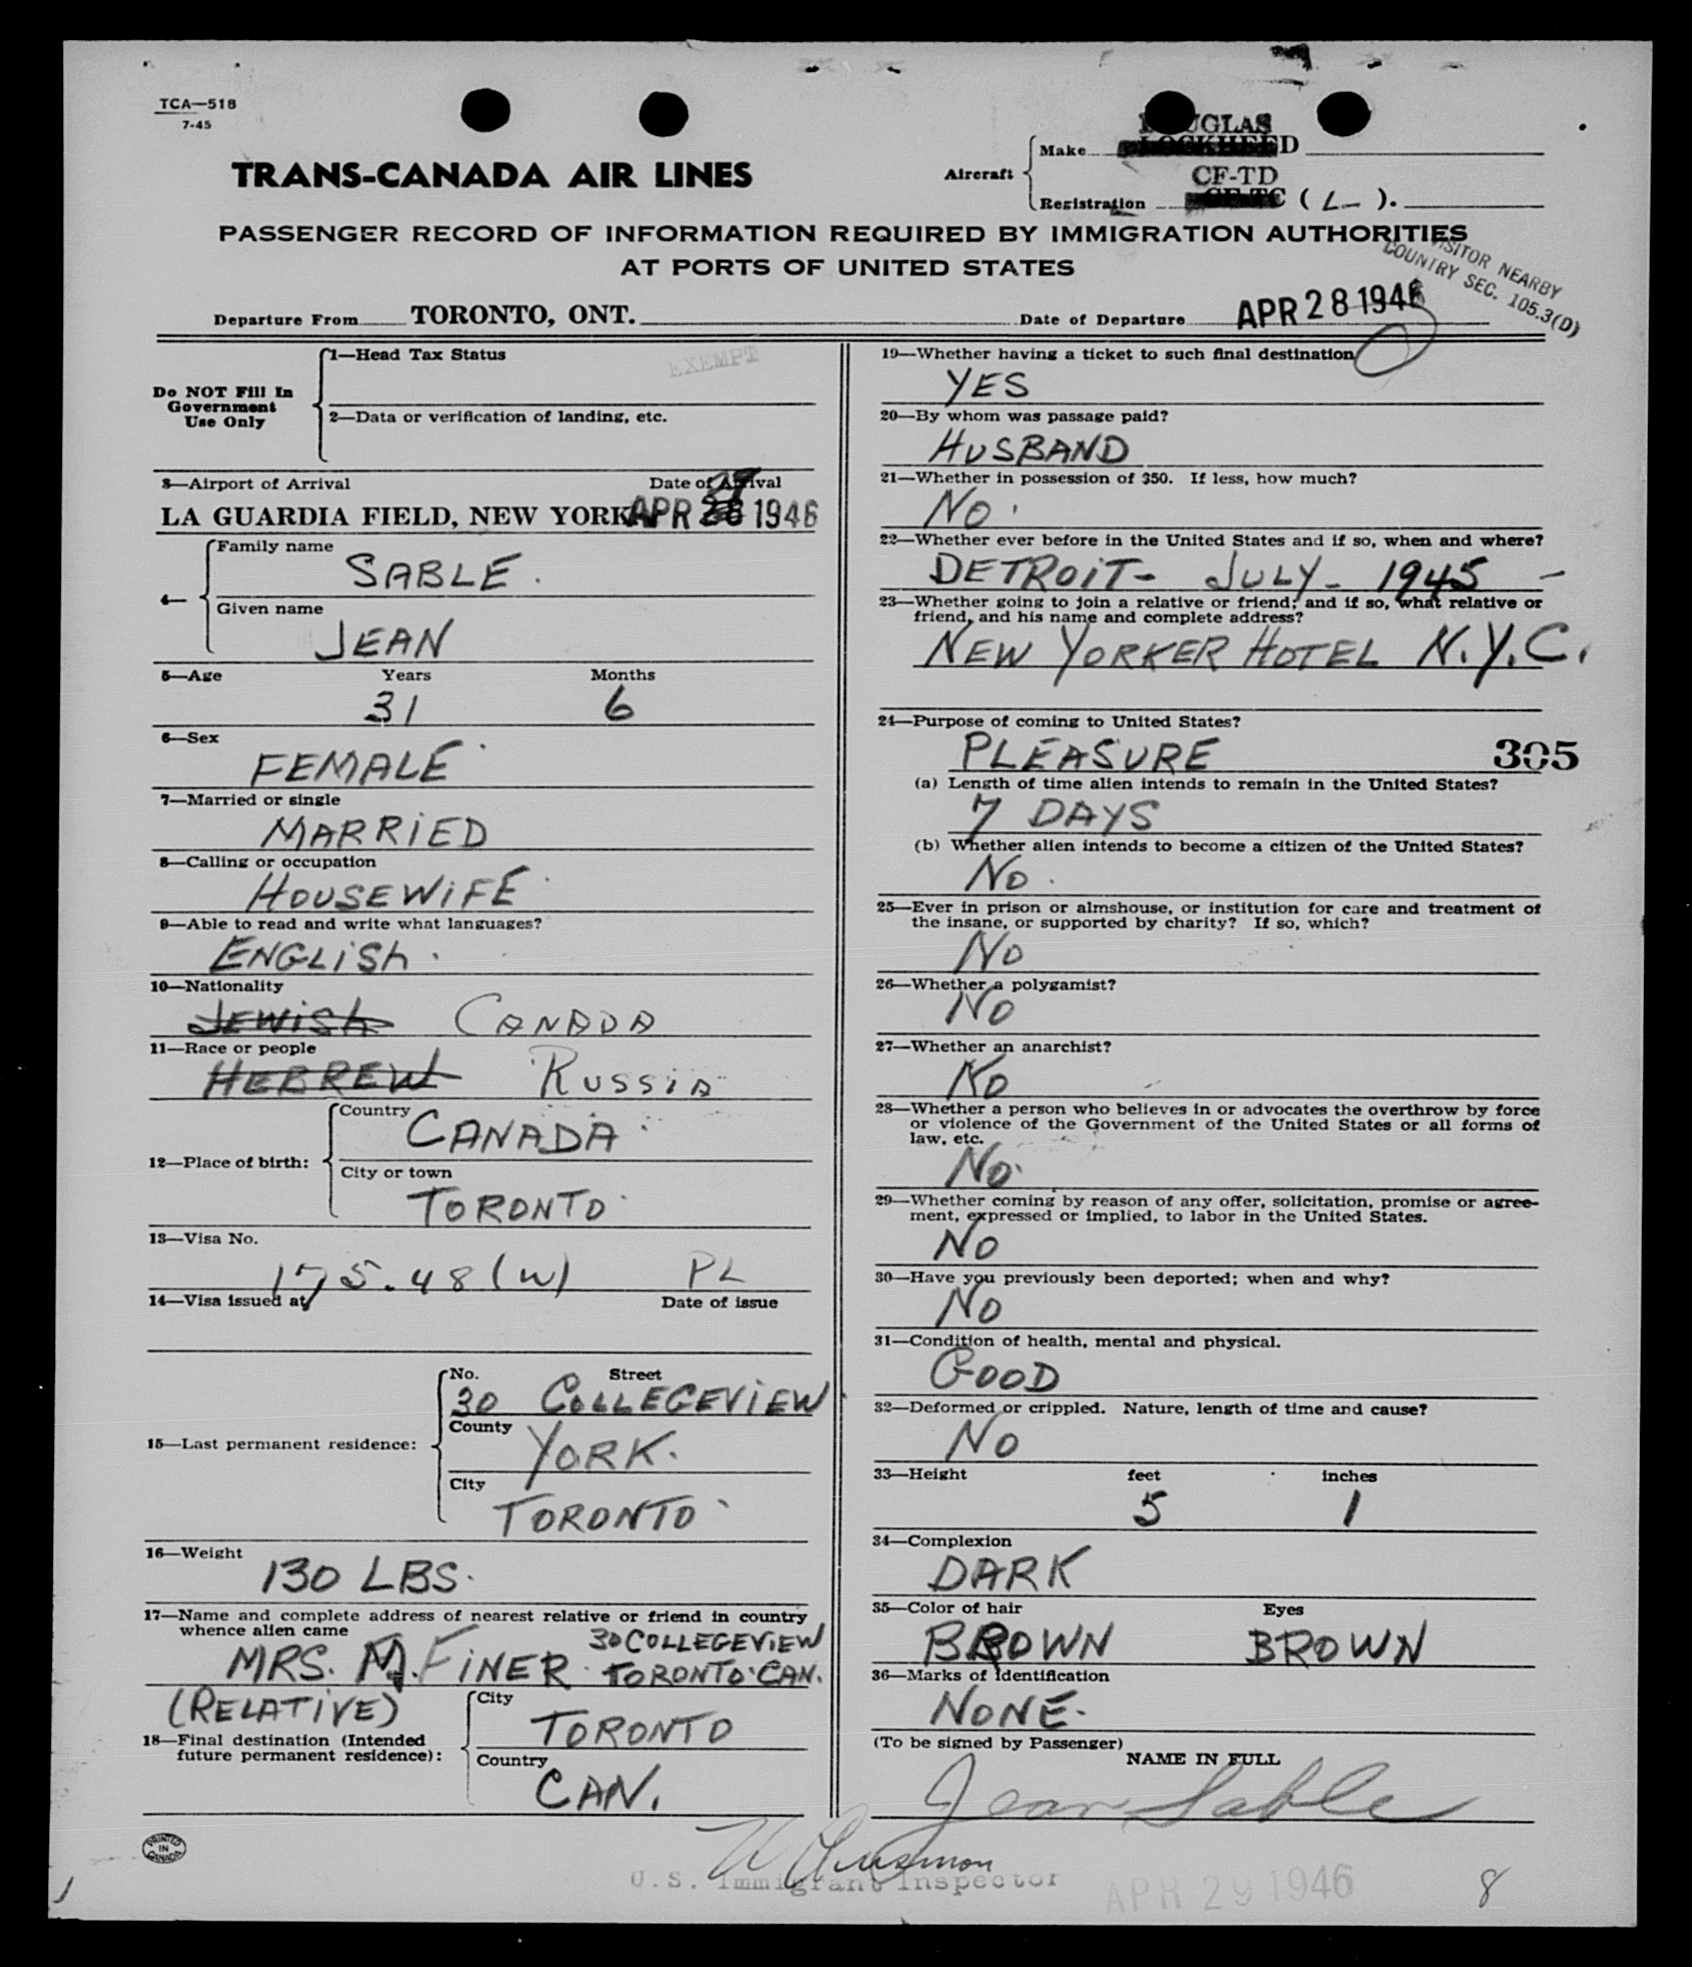 TCA—518
7-45
DOUGLAS
Aircraft
Make LOCKHEED
CF-TD
Registration CF-TC ( L- ).
TRANS-CANADA AIR LINES
PASSENGER RECORD OF INFORMATION REQUIRED BY IMMIGRATION AUTHORITIES
AT PORTS OF UNITED STATES
VISITOR NEARBY
COUNTRY SEC. 105.3(D)
Departure From TORONTO, ONT. Date of Departure APR 28 1946
Do NOT Fill In
Government
Use Only
1—Head Tax Status EXEMPT
2—Data or verification of landing, etc.
3—Airport of Arrival Date of Arrival
LA GUARDIA FIELD, NEW YORK APR 1946
4—
Family name
SABLE.
Given name
JEAN
5—Age Years Months
31 6
6—Sex
FEMALE
7—Married or single
MARRIED
8—Calling or occupation
HOUSEWIFE
9—Able to read and write what languages?
ENGLISH.
10—Nationality
JEWISH CANADA
11—Race or people
HEBREW RUSSIA
12—Place of birth:
Country
CANADA
City or town
TORONTO
13—Visa No.
175.48 (W) PL
14—Visa issued at Date of issue
15—Last permanent residence:
No. Street
30 COLLEGEVIEW
County
YORK.
City
TORONTO
16—Weight
130 LBS.
17—Name and complete address of nearest relative or friend in country
whence alien came
30 COLLEGEVIEW
MRS. M. FINER TORONTO CAN.
(RELATIVE)
18—Final destination (Intended
future permanent residence):
City
TORONTO
Country
CAN.
19—Whether having a ticket to such final destination
YES
20—By whom was passage paid?
HUSBAND
21—Whether in possession of $50. If less, how much?
NO.
22—Whether ever before in the United States and if so, when and where?
DETROIT- JULY- 1945 -
23—Whether going to join a relative or friend; and if so, what relative or
friend, and his name and complete address?
NEW YORKER HOTEL N.Y.C.
24—Purpose of coming to United States?
PLEASURE 305
(a) Length of time alien intends to remain in the United States?
7 DAYS
(b) Whether alien intends to become a citizen of the United States?
NO.
25—Ever in prison or almshouse, or institution for care and treatment of
the insane, or supported by charity? If so, which?
NO
26—Whether a polygamist?
NO
27—Whether an anarchist?
NO
28—Whether a person who believes in or advocates the overthrow by force
or violence of the Government of the United States or all forms of
law, etc.
NO.
29—Whether coming by reason of any offer, solicitation, promise or agree-
ment, expressed or implied, to labor in the United States.
NO
30—Have you previously been deported; when and why?
NO
31—Condition of health, mental and physical.
GOOD
32—Deformed or crippled. Nature, length of time and cause?
NO
33—Height feet inches
5 1
34—Complexion
DARK
35—Color of hair Eyes
BROWN BROWN
36—Marks of Identification
NONE.
(To be signed by Passenger)
NAME IN FULL
Jean Sable
PRINTED
IN
CANADA
U.S. Immigrant Inspector
APR 29 1946
8